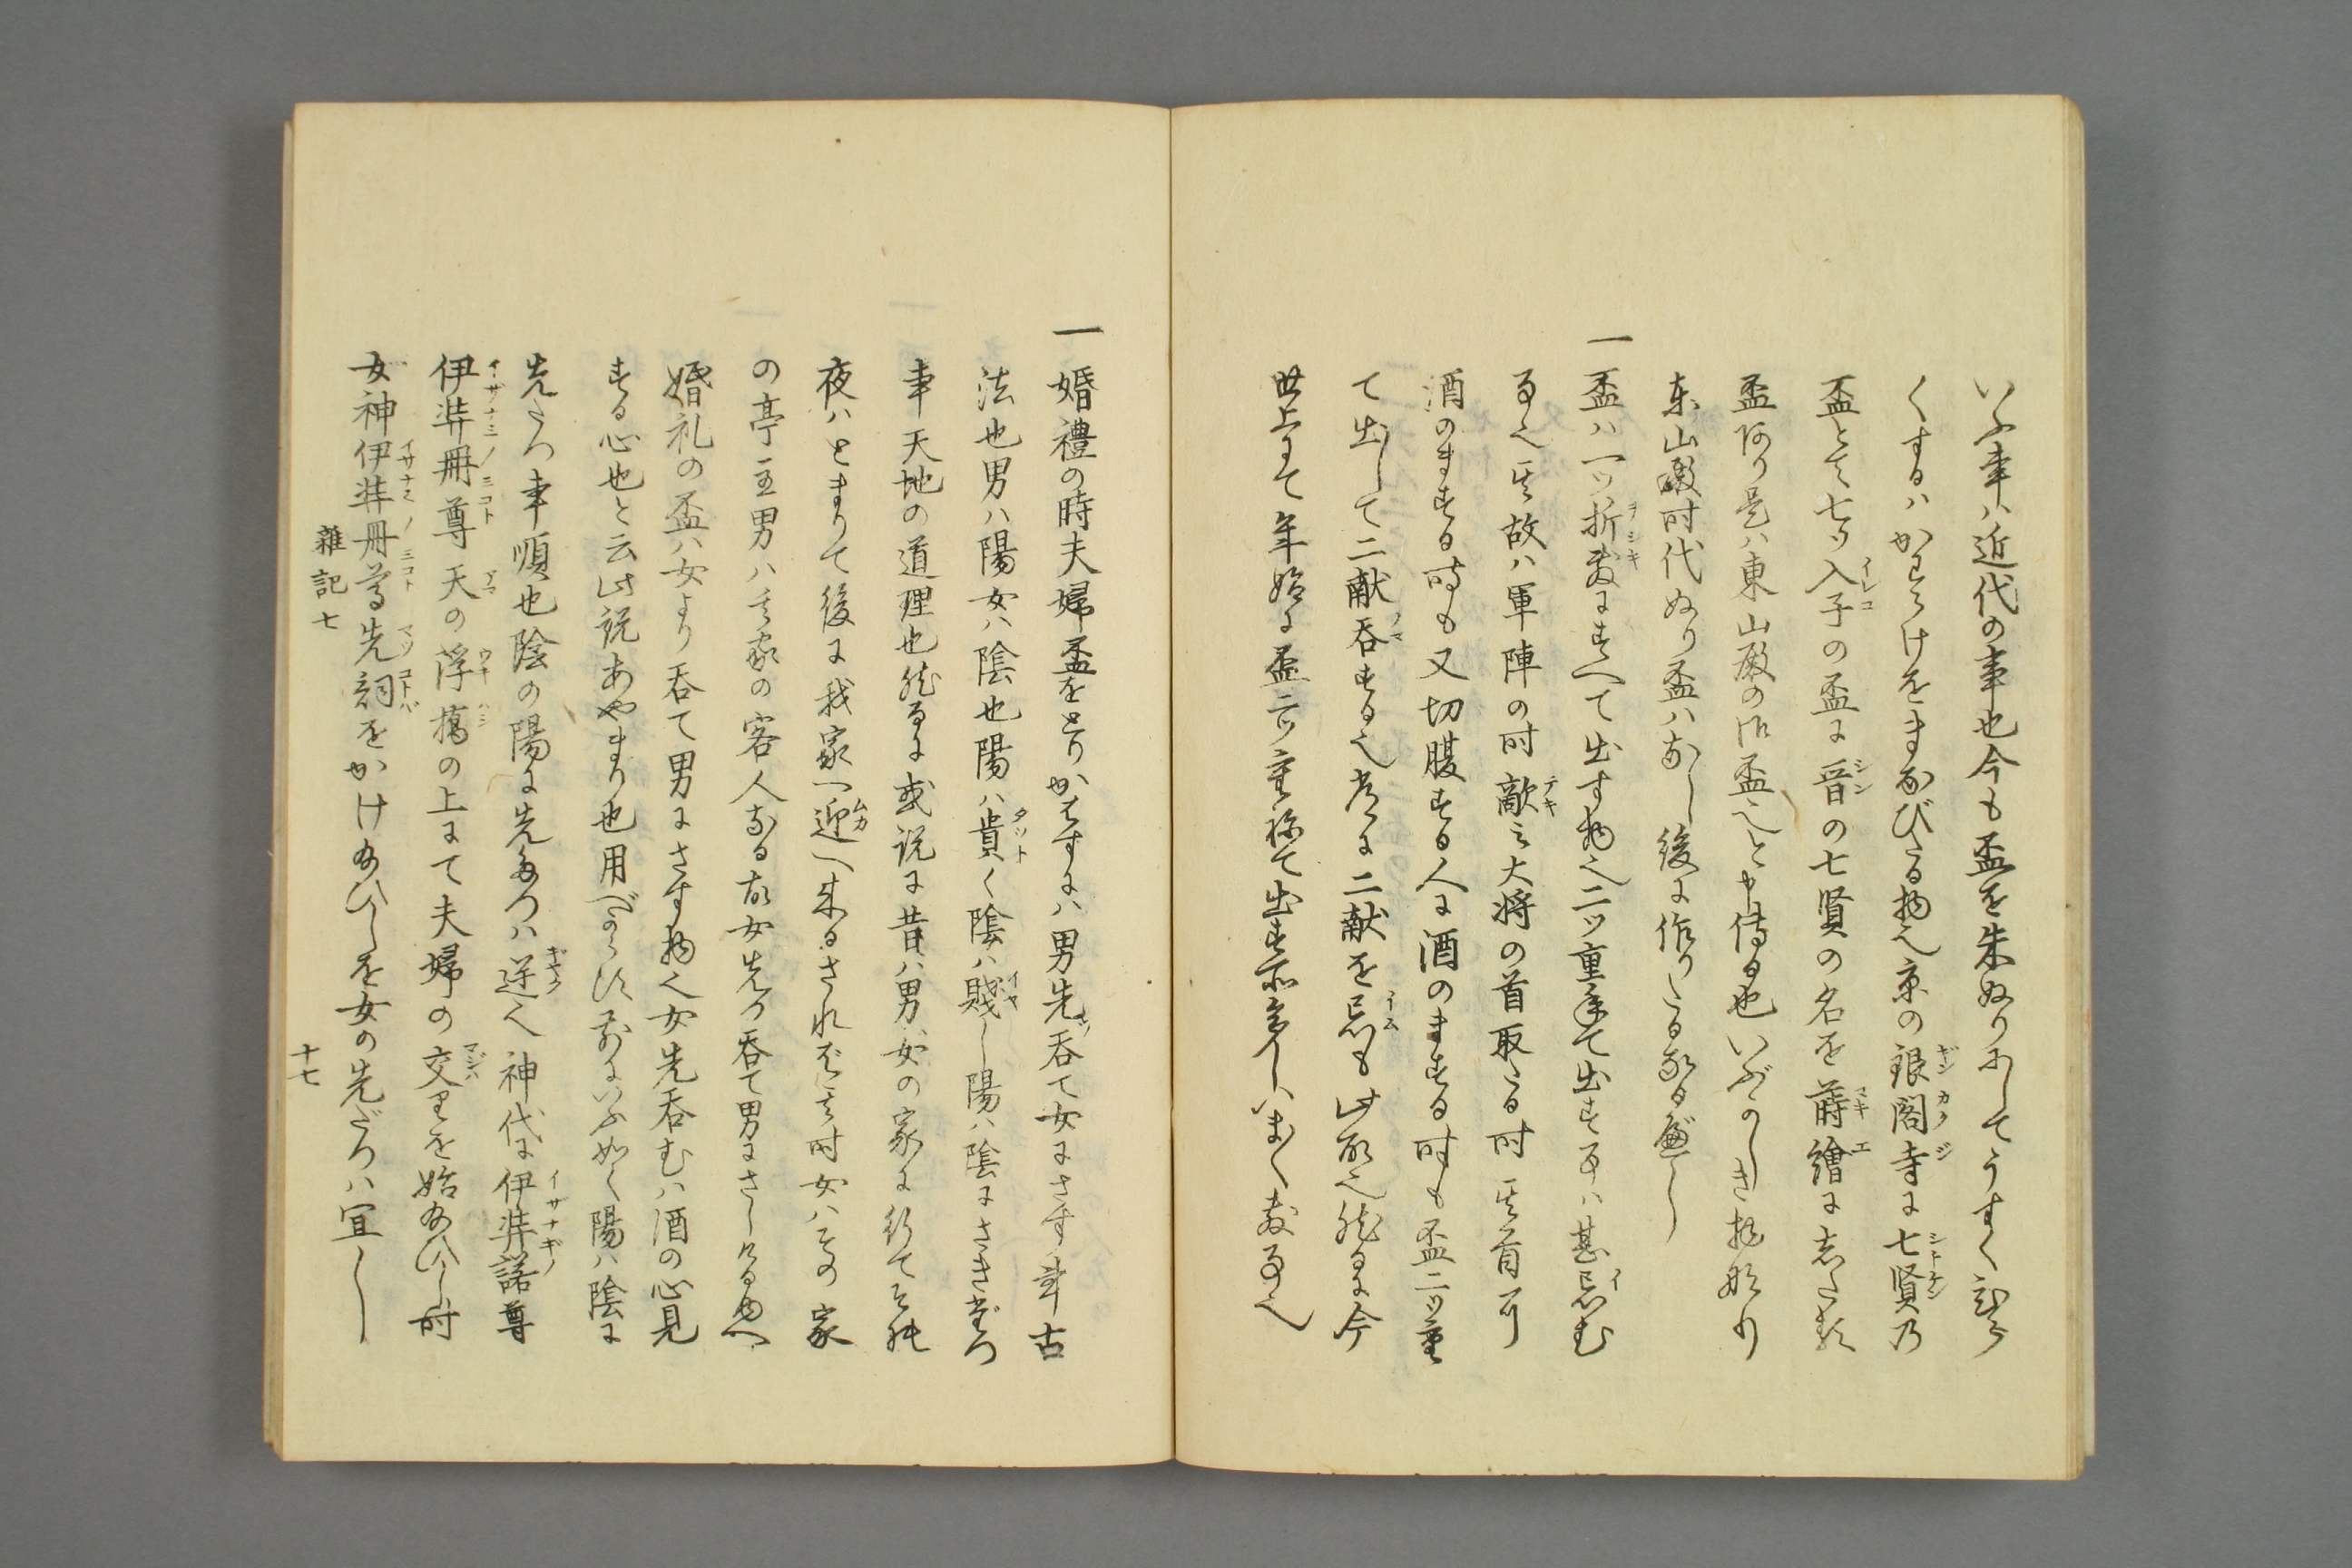 いふ事ハ近代の事也今も盃を朱ぬりにしてうすくひら
くするハかわらけをまなびたる物也京の銀閣寺に七賢乃
盃とて七ツ入子の盃に晋の七賢の名を蒔繪に志たる
盃阿り是ハ東山殿の御盃也と申傳る也いぶかしき物なり
東山殿時代ぬり盃ハなし後に作りたるなるべし
一盃ハ一ツ折敷にすへて出す物也二ツ重ねて出す事ハ甚忌む
事也其故ハ軍陣の時敵之大将の首取たる時其首可
酒のまする時も又切腹する人に酒のまする時も盃二ツ重
て出して二献呑する也常に二献を忌も此故也然るに今
世上にて年始に盃二ツ重祢て出す所多しいまハ敷事也
一婚禮の時夫婦盃をとりかはすにハ男先呑て女にさす事古
法也男ハ陽女ハ陰也陽ハ貴く陰ハ賤し陽ハ陰にさきだつ
事天地の道理也然るに或説に昔ハ男女の家に行てその
夜ハとまりて後に我家へ迎へ来るされば其時女ハその家
の亭主男ハ其家の客人なる故女先ツ呑て男にさしける由へ
婚礼の盃ハ女より呑て男にさす物也女先呑むハ酒の心見
する心也と云此説あやまり也用べからず前にいふ如く陽ハ陰に
先たつ事順也陰の陽に先たつハ逆也神代に伊弉諾尊
伊弉冊尊天の浮橋の上にて夫婦の交りを始給ひし時
女神伊弉冊尊先詞をかけ給ひしを女の先だつハ宜し
雜記七
十七